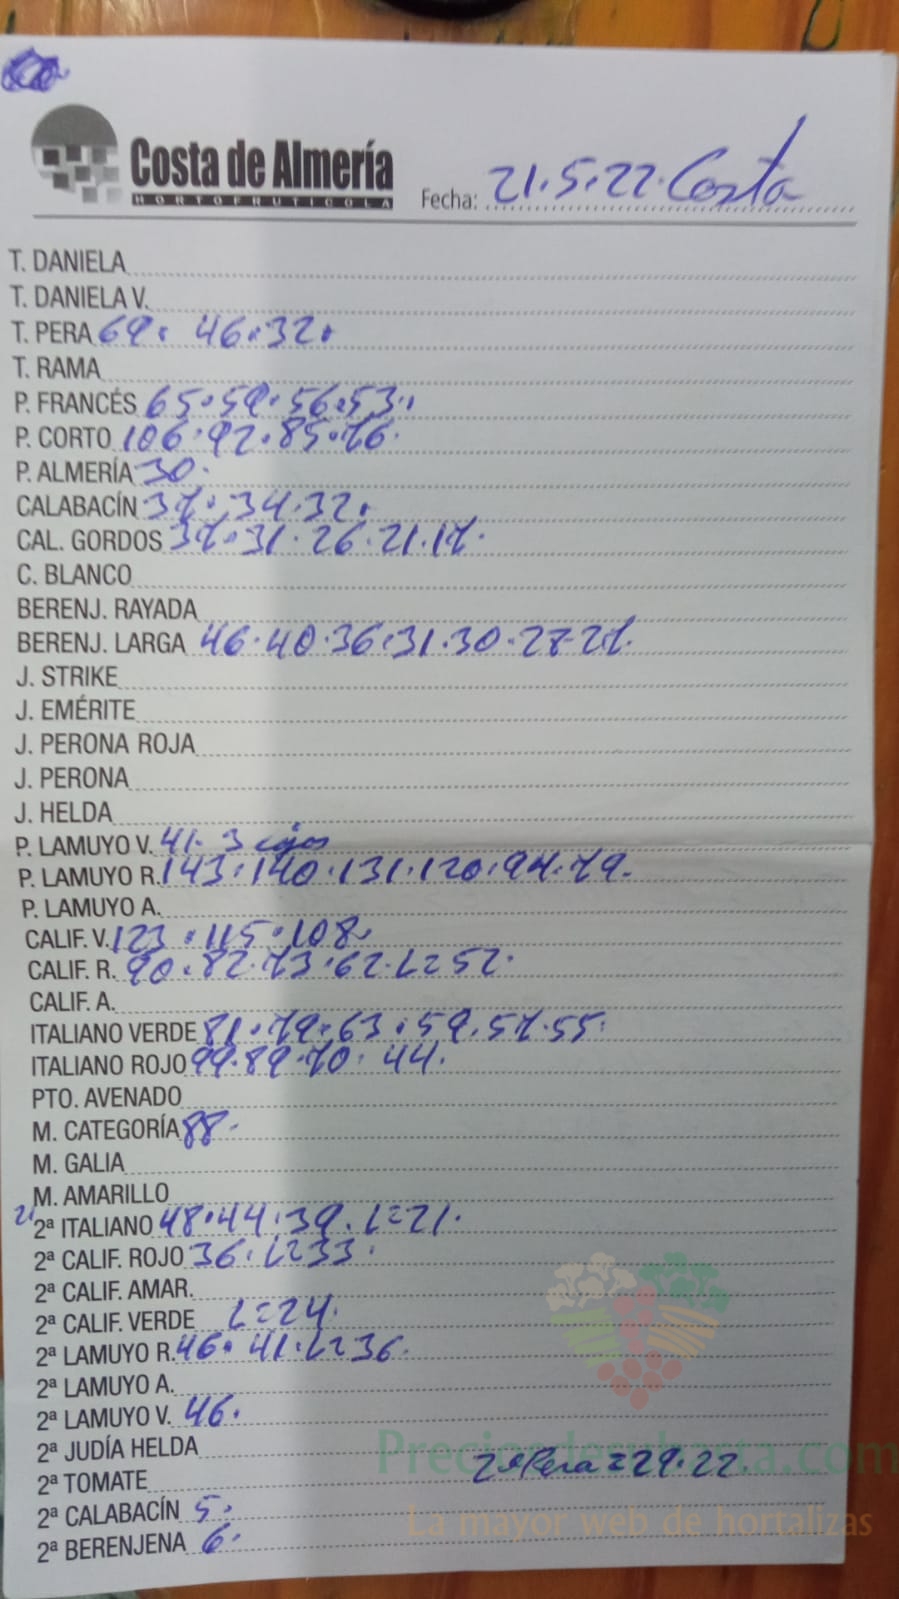 Costa de Almería
HORTOFRUTICOLA
Fecha: 21.5.22. Costa
T. DANIELA
T. DANIELA V.
T. PERA 69. 46.32.
T. RAMA
P. FRANCÉS 65.59.56.53.
P. CORTO 106.92.85.76.
P. ALMERÍA 30.
CALABACÍN 37.34.32.
CAL. GORDOS 37.31.26.21.17.
C. BLANCO
BERENJ. RAYADA
BERENJ. LARGA 46.40.36.31.30.27.27.
J. STRIKE
J. EMÉRITE
J. PERONA ROJA
J. PERONA
J. HELDA
P. LAMUYO V. 41. 3 cajas
P. LAMUYO R. 143.140.131.120.94.79.
P. LAMUYO A.
CALIF. V. 123.115.108.
CALIF. R. 90.82.73.62.L=52.
CALIF. A.
ITALIANO VERDE 81.79.63.59.57.55.
ITALIANO ROJO 99.89.70. 44.
PTO. AVENADO
M. CATEGORÍA 88.
M. GALIA
M. AMARILLO
2ª ITALIANO 48.44.39.L=21.
2ª CALIF. ROJO 36.L=33.
2ª CALIF. AMAR.
2ª CALIF. VERDE L=24.
2ª LAMUYO R. 46.41.L=36.
2ª LAMUYO A.
2ª LAMUYO V. 46.
2ª JUDÍA HELDA
Preciosdesubasta.com
2ª TOMATE 2ª Pera=29.22
2ª CALABACÍN 5.
La mayor web de hortalizas
2ª BERENJENA 6.